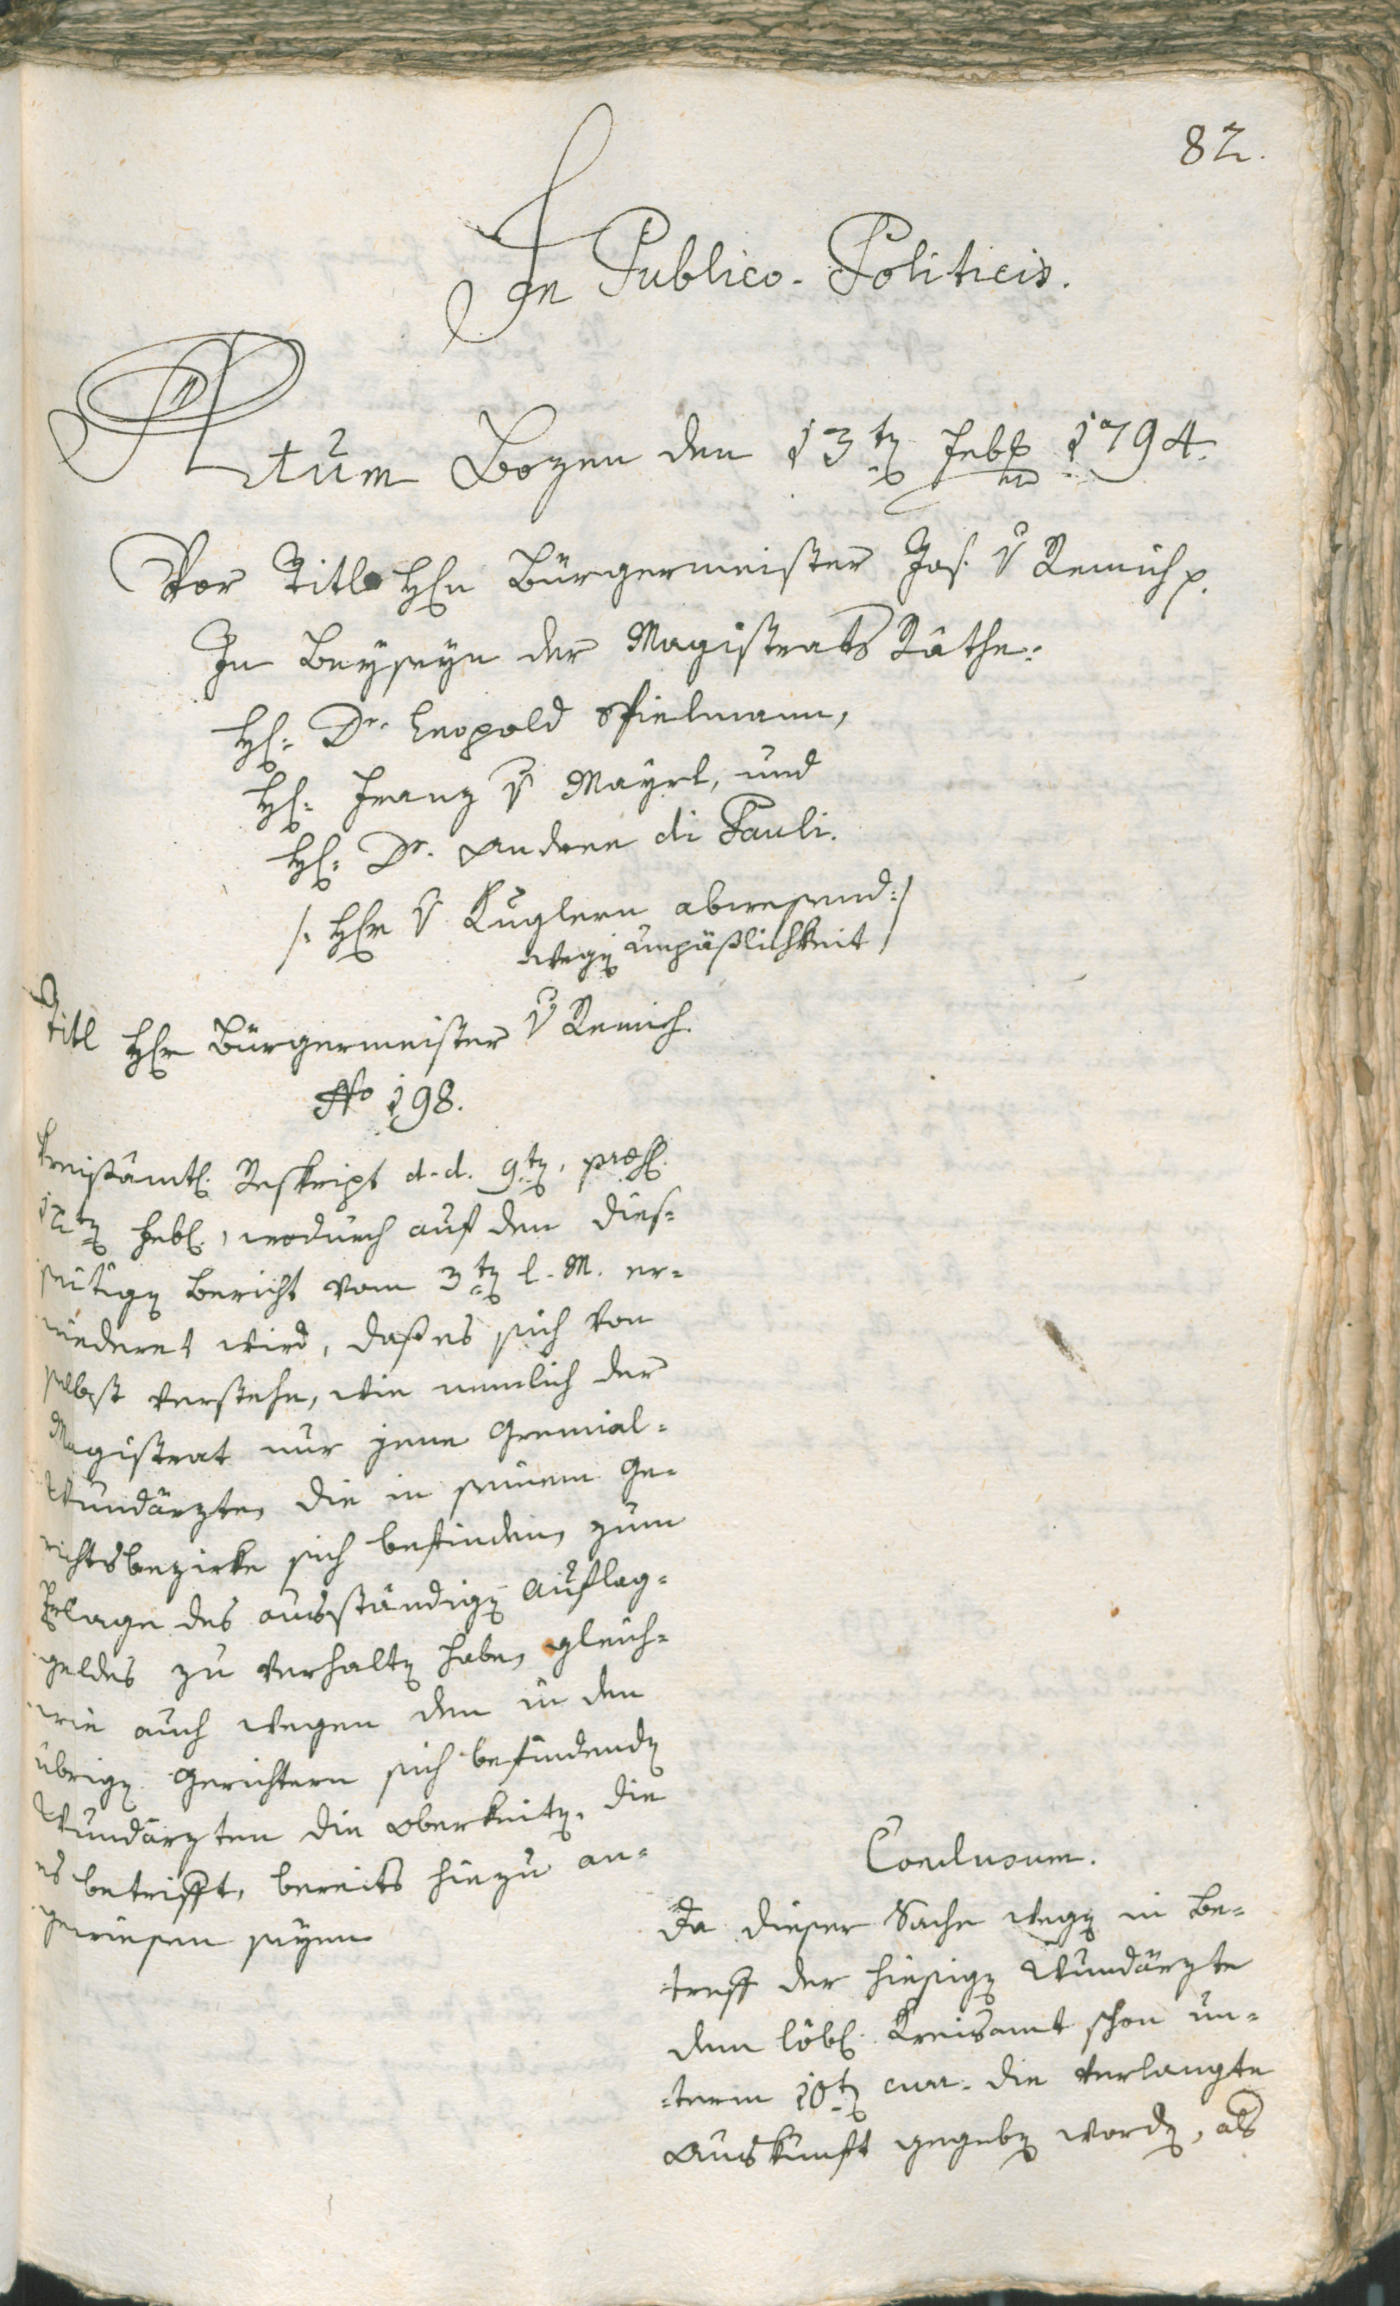 82.
In Publico-Politicis.
Actum Bozen den 13ten Febr 1794.
Vor Titl Hrn Bürgermeister Jos. v Remich p.
In Beyseyn der Magistrats Räthe:
Hr: Dr. Leopold Spielmann,
Hr: Franz v Mayrl, und
Hr: Dr. Andree di Pauli.
/: Hr v Kuglern abwesend :/
wegen unpäßlichkeit
Titl Hr Bürgermeister v Remich.
No 198.
Kreißämtl. Reskript d.d. 9ten, præs.
12ten Febl., wodurch auf den dies=
seitigen Bericht vom 3ten l. M. er=
wiederet wird, daß es sich von
selbst verstehe, wie nemlich der
Magistrat nur jene Gremial=
Wundärzte, die in seinem Ge=
richtsbezirke sich befinden, zum
Erlage des ausständigen Auflag=
geldes zu verhalten habe, gleich=
wie auch wegen den in den
übrigen Gerichtern sich befindenden
Wundärzten die Oberkeiten, die
es betrifft, bereits hiezu an=
gewiesen seyen
Conclusum.
Da dieser Sache wegen in Be=
treff der hiesigen Wundärzte
dem löbl. Kreisamt schon un=
term 10ten curr. die verlangte
Auskunft gegeben worden, als